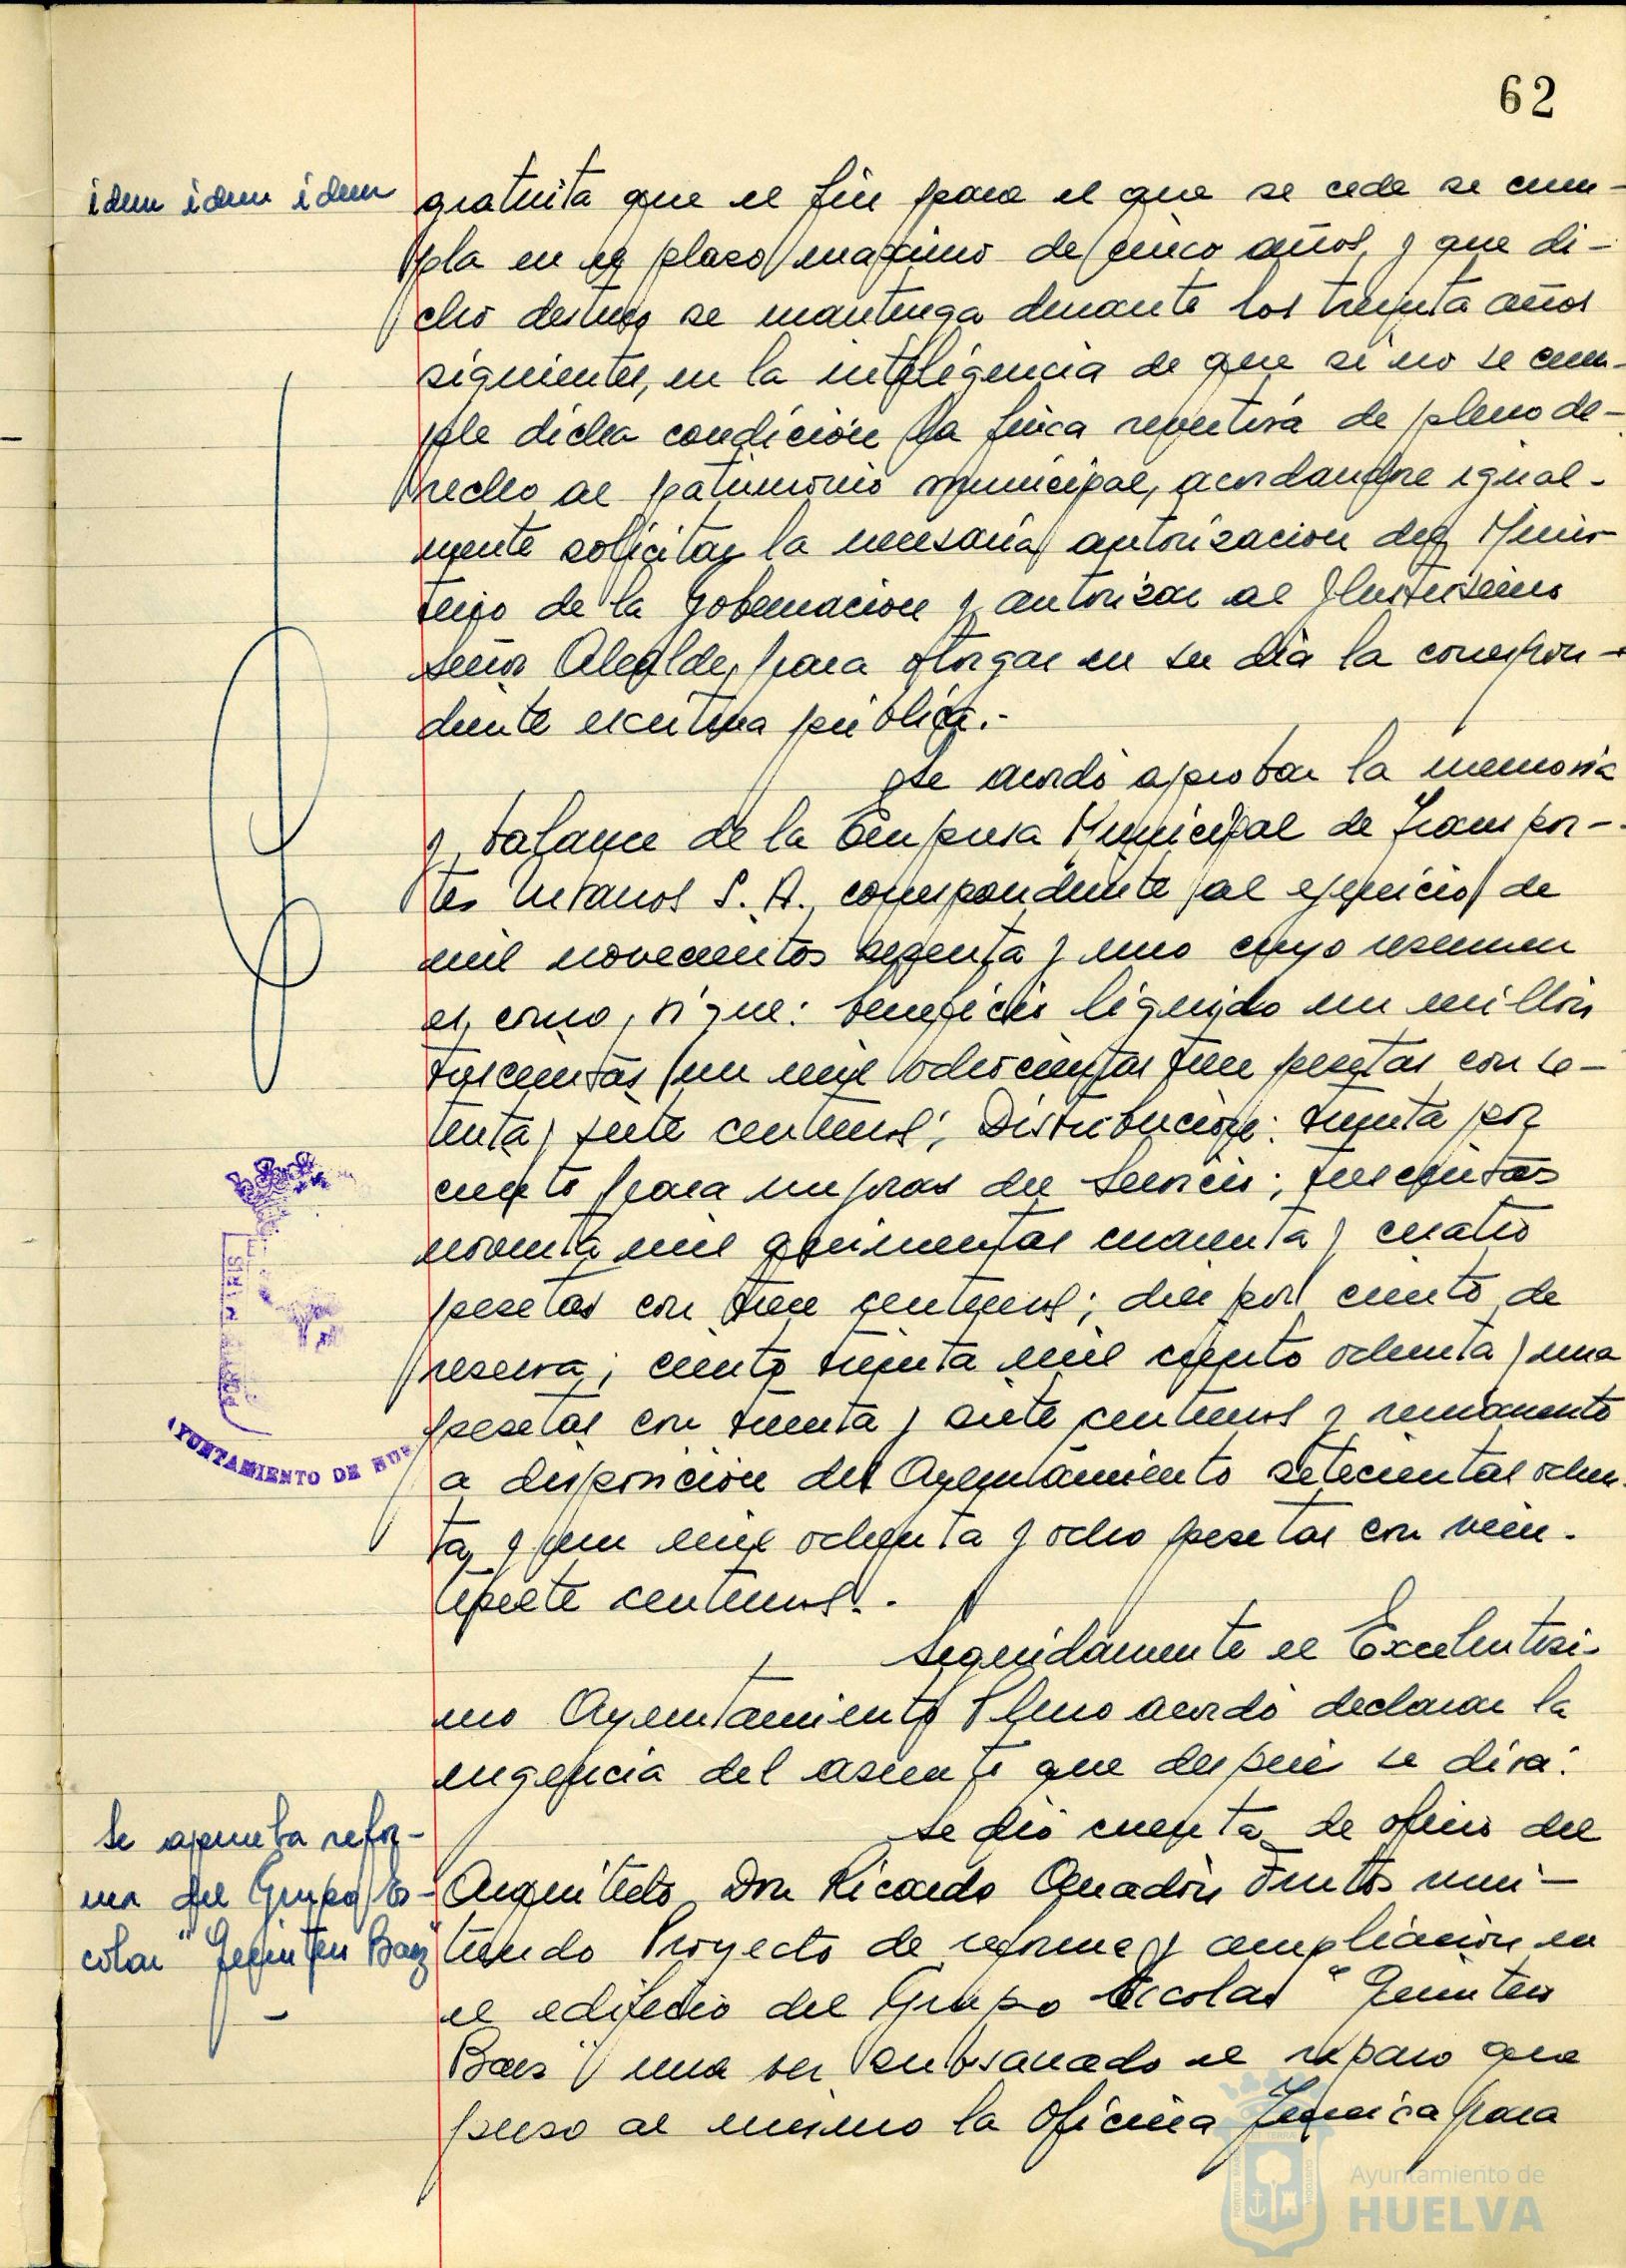 62
idem idem idem
gratuita que el fin para el que se cede se cum-
pla en el plazo maximo de cinco años, y que di-
cho destino se mantenga durante los treinta años
siguientes, en la inteligencia de que si no se cum-
ple dicha condición la finca revertirá de pleno de-
recho al patrimonio municipal, acordandose igual-
mente solicitar la necesaria autorizacion del Minis-
terio de la Gobernacion y autorizar al Ilustrisimo
Señor Alcalde, para otorgar en su día la correspon-
diente escritura pública.-
Se acordó aprobar la memoria
y balance de la Empresa Municipal de Transpor-
tes Urbanos S. A., correspondiente al ejercicio de
mil novecientos sesenta y uno cuyo resumen
es como sigue: beneficio liquido un millón
trescientas un mil ochocientas trece pesetas con se-
tenta y siete centimos; Distribución: treinta por
ciento para mejoras del Servicio; trescientas
noventa mil quinientas cuarenta y cuatro
pesetas con trece centimos; diez por ciento de
reserva; ciento treinta mil ciento ochenta y una
pesetas con treinta y siete centimos y remanente
a disposición del Ayuntamiento setecientas ochen-
ta y un mil ochenta y ocho pesetas con vein-
tisiete centimos.-
Seguidamente el Excelentisi-
mo Ayuntamiento Pleno acordó declarar la
urgencia del asunto que despues se dirá:
Se aprueba refor-
ma del Grupo Es-
colar "Quintero Baez"
Se dió cuenta de oficio del
Arquitecto Don Ricardo Anadón Frutos remi-
tiendo Proyecto de reforma y ampliación en
el edificio del Grupo Escolar "Quintero
Baez" una vez subsanado el reparo que
puso al mismo la Oficina Tecnica para
PORTUS MARIS
AYUNTAMIENTO DE HUE
Ayuntamiento de
HUELVA